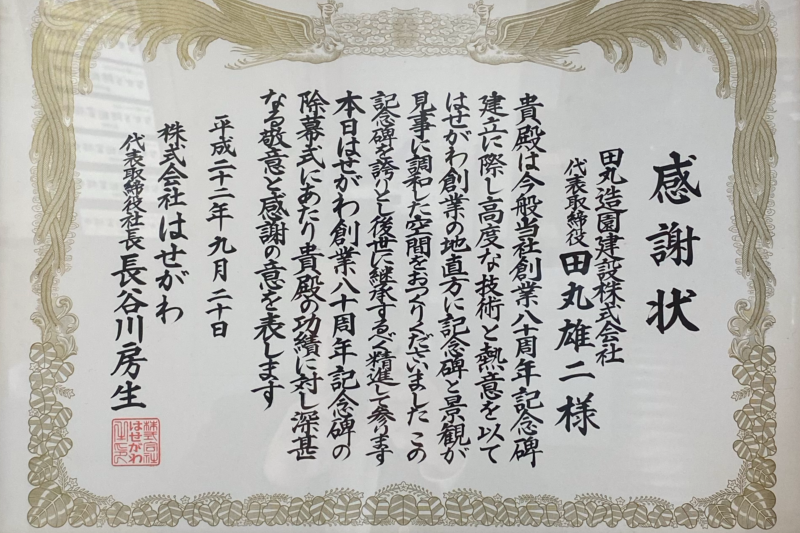 感謝状
田丸造園建設株式会社
代表取締役 田丸雄二様
貴殿は今般当社創業八十周年記念碑
建立に際し高度な技術と熱意を以て
はせがわ創業の地直方に記念碑と景観が
見事に調和した空間をおつくりくださいました この
記念碑を誇りとし後世に継承するべく精進して参ります
本日はせがわ創業八十周年記念碑の
除幕式にあたり貴殿の功績に対し深甚
なる敬意と感謝の意を表します
平成二十二年九月二十日
株式会社はせがわ
代表取締役社長 長谷川房生
株式会社
はせがわ